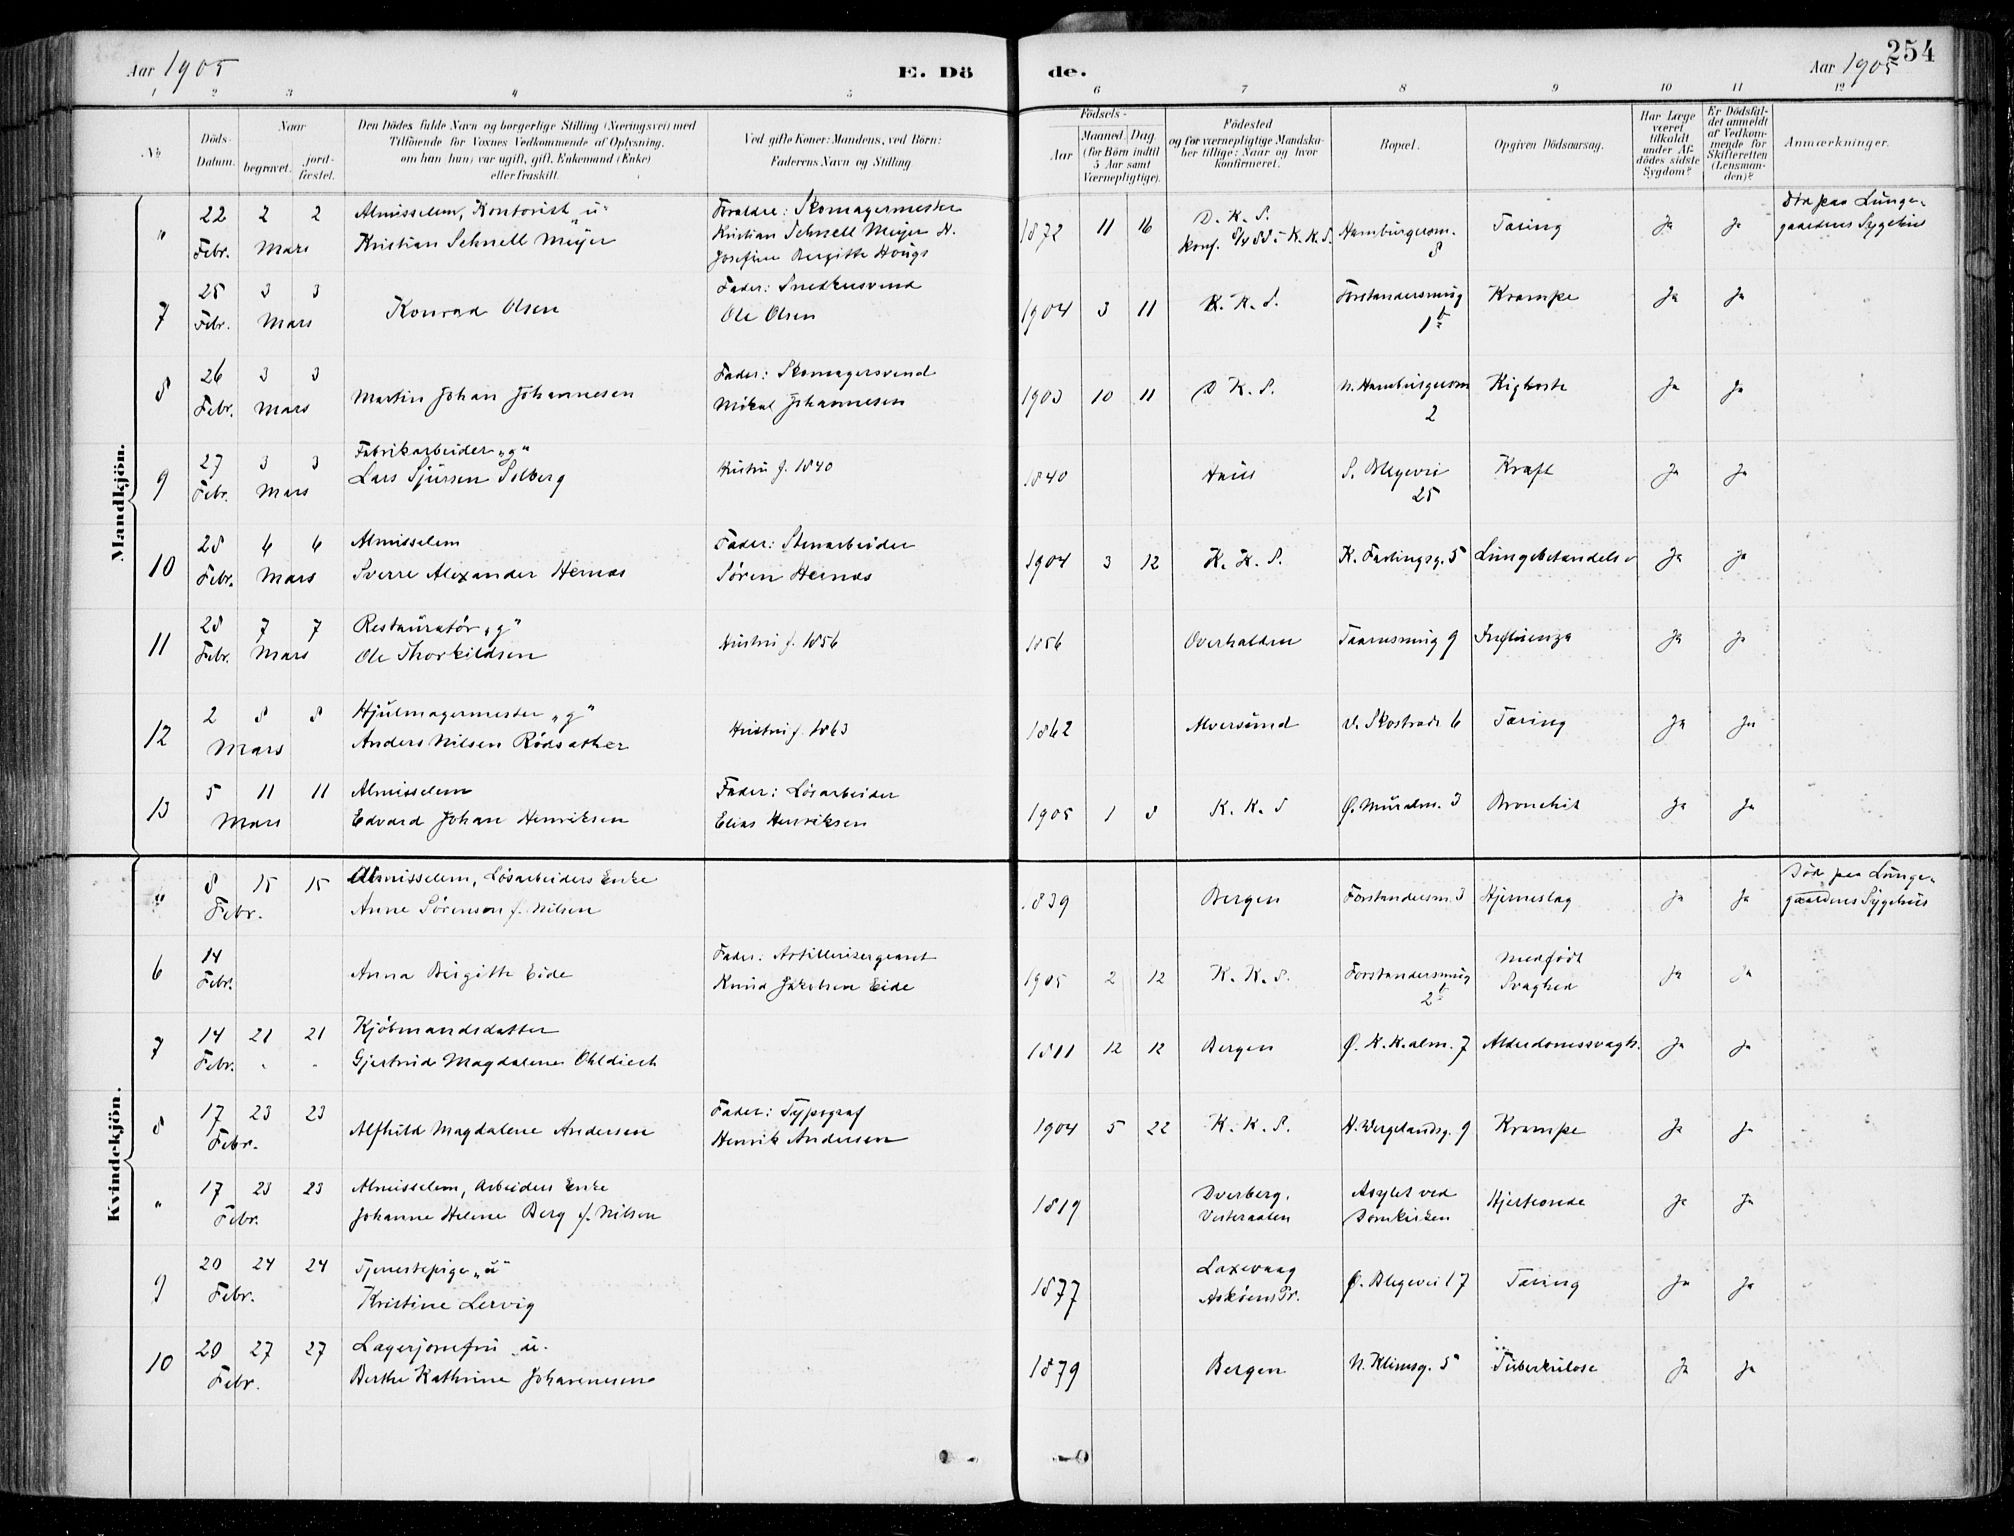 254
Aar 1905
E. Dö de.
Aar 1905
1 2 3 4 5 6 7 8 9 10 11 12
No.
Döds-Datum.
Naar
begravet.
jord-fæstet.
Den Dødes fulde Navn og borgerlige Stilling (Næringsvei) med
Tilföiende for Voxnes Vedkommende af Oplysning,
om han (hun) var ugift, gift, Enkemand (Enke)
eller fraskilt.
Ved gifte Koner: Mandens, ved Börn:
Faderens Navn og Stilling
Födsels-
Aar
Maaned. Dag.
(for Börn indtil
5 Aar samt
Værnepligtige).
Födested
og for værnepligtige Mandska-
ber tillige: Naar og hvor
konfirmeret.
Bopæl.
Opgiven Dödsaarsag.
Har Læge
været
tilkaldt
under Af-
dödes sidste
Sygdom?
Er Dödsfal-
det anmeldt
af Vedkom-
mende for
Skifteretten
(Lensman-
den)?
Anmærkninger.
Mandkjön.
" 22 Febr. 2 2 Mars
Almisselem, Kontorist „u"
Kristian Schnell Meyer
Foraldre: Skomagermester
Kristian Schnell Meyer &
Josefine Bergitte Hougs
1872 11 16
D. K. S.
konf. 8/4 88 i K. K. S.
Hamburgersm. 8
Tæring
Ja Ja
Død paa Lunge-
gaardens Sygehus
7 25 Febr. 3 3 Mars
Konrad Olsen
Fader: Snedkersvend
Ole Olsen
1904 3 11
K. K. S.
Forstandersmug 1b
Krampe
Ja Ja
8 26 Febr. 3 3 Mars
Martin Johan Johannesen
Fader: Skomagersvend
Mikal Johannesen
1903 10 11
D K. S.
N. Hamburgersm 2
Kighoste
Ja Ja
9 27 Febr. 3 3 Mars
Fabrikarbeider „g"
Lars Sjursen Solberg
Hustru f. 1840
1840
Haus
S. Blegevei 25
Kræft
Ja Ja
10 28 Febr. 6 6 Mars
Almisselem
Sverre Alexander Hernæs
Fader: Stenarbeider
Søren Hernæs
1904 3 12
K. K. S.
K. Fastingsg. 5
Lungebetændelse
Ja Ja
11 28 Febr. 7 7 Mars
Restauratør „g"
Ole Thorkildsen
Hustru f. 1856
1856
Overhalden
Taarnsmug 9
Influenza
Ja Ja
12 2 8 8 Mars
Hjulmagermester „g"
Anders Nilsen Rødsæther
Hustru f. 1863
1862
Alversund
V. Skostræde 6
Tæring
Ja Ja
13 5 11 11 Mars
Almisselem
Edvard Johan Henriksen
Fader: Løsarbeider
Elias Henriksen
1905 1 8
K. K. S
Ø. Muralm. 3
Bronchit
Ja Ja
Kvindekjön.
" 8 15 15 Febr.
Almisselem, Løsarbeiders Enke
Anne Sørensen f. Nilsen
1839
Bergen
Forstandersm. 3
Hjerneslag
Ja Ja
Død paa Lunge-
gaardens Sygehus
6 14 Febr.
Anna Birgitte Eide
Fader: Artillerisergeant
Knud Jakobsen Eide
1905 2 12
K. K. S.
Forstandersmug 2b
Medfødt
Svaghed
Ja Ja
7 14 21 21 Febr. " "
Kjøbmandsdatter
Gjertrud Magdalene Ohldieck
1811 12 12
Bergen
Ø. K. K. alm. 7
Alderdomssvagh.
Ja Ja
8 17 23 23 Febr.
Alfhild Magdalene Andersen
Fader: Typograf
Henrik Andersen
1904 5 22
K. K. S.
H. Wergelandsg. 9
Krampe
Ja Ja
" 17 23 23 Febr.
Almisselem, Arbeiders Enke
Johanne Helene Berg f. Nilsen
1819
Dverberg,
Vesteraalen
Asylet ved
Domkirken
Hjerteonde
Ja Ja
9 20 24 24 Febr.
Tjenestepige „u"
Kristine Lervig
1877
Laxevaag
Askøens Pr.
Ø. Blegevei 17
Tæring
Ja Ja
10 20 27 27 Febr.
Lagerjomfru „u"
Berthe Kathrine Johannesen
1879
Bergen
N. Klimsg. 5
Tuberkulose
Ja Ja